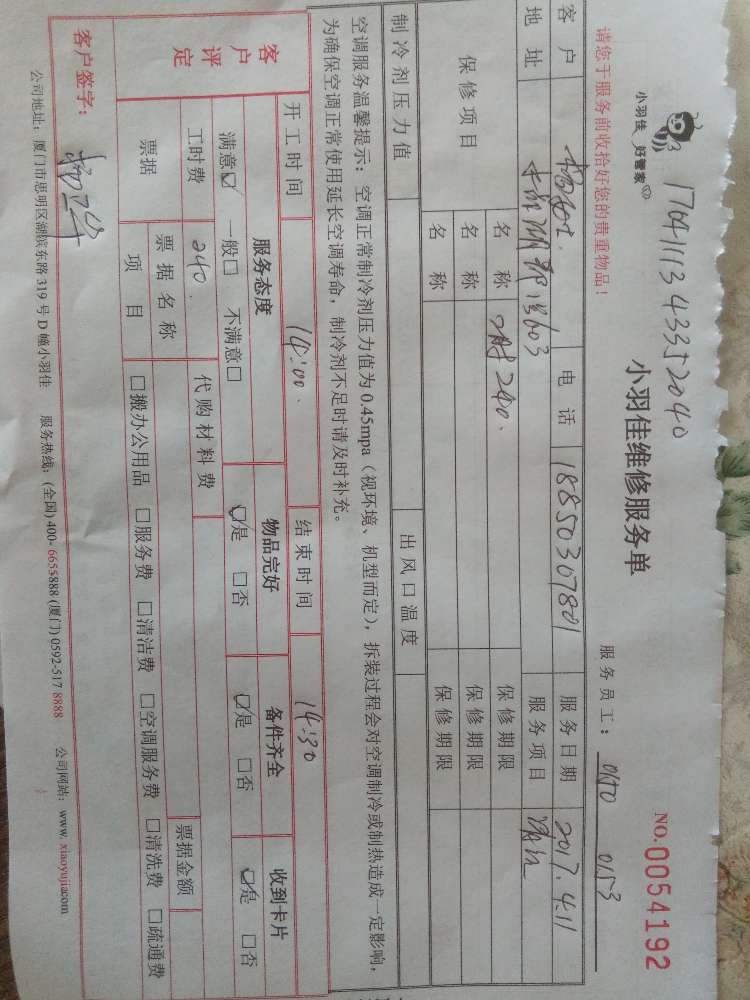 1704111343352040
小羽佳 好管家
小羽佳维修服务单
NO.0054192
请您于服务前收拾好您的贵重物品！
服务员工： 0150 0153
客户 电话 18850307801 服务日期 2017.4.11
地址 603 服务项目 清洗
保修项目 名称 240 保修期限
名称 保修期限
名称 保修期限
制冷剂压力值 出风口温度
空调服务温馨提示：空调正常制冷剂压力值为0.45mpa（视环境、机型而定），拆装过程会对空调制冷或制热造成一定影响，
为确保空调正常使用延长空调寿命，制冷剂不足时请及时补充。
开工时间 14:00 结束时间 14:30
客户评定 服务态度 物品完好 备件齐全 收到卡片
满意☑ 一般□ 不满意□ ☑是 □否 ☑是 □否 ☑是 □否
工时费 240 代购材料费
票据 票据名称 票据金额
项目 □搬办公用品 □服务费 □清洁费 □空调服务费 □清洗费 □疏通费
客户签字：
公司地址：厦门市思明区湖滨东路319号D幢小羽佳 服务热线：(全国)400-6655888 (厦门)0592-517 8888 公司网站：www.xiaoyujia.com